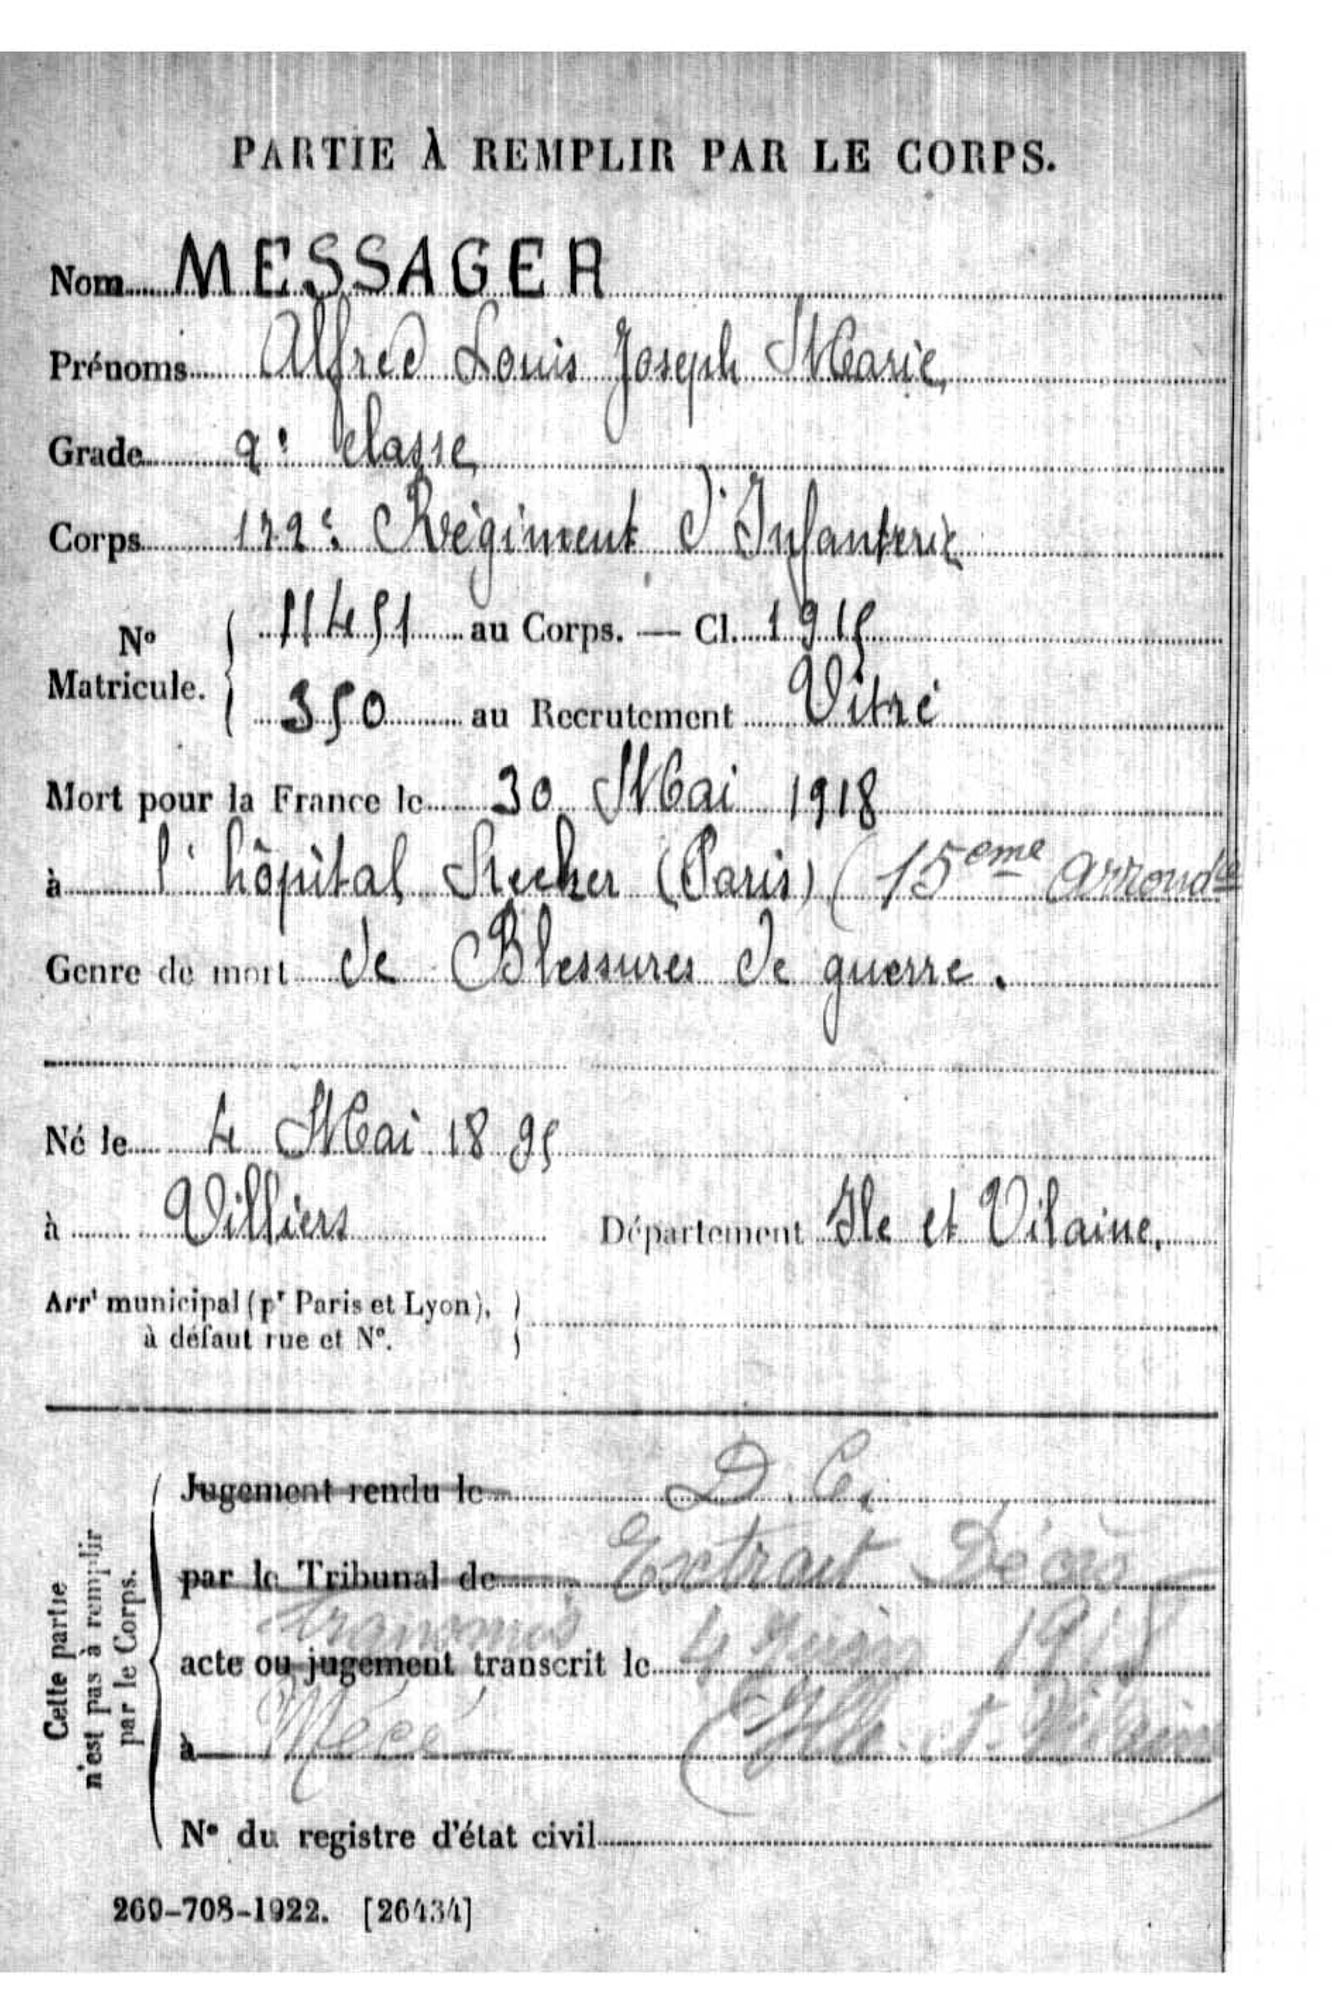 PARTIE À REMPLIR PAR LE CORPS.
Nom MESSAGER
Prénoms Alfred Louis Joseph Marie
Grade 2e classe
Corps 172e Régiment d'Infanterie
No Matricule. 11451 au Corps. — Cl. 1915
350 au Recrutement Vitré
Mort pour la France le 30 Mai 1918
à l'hôpital (Paris) (15eme Arrondt
Genre de mort de Blessures de guerre.
Né le 4 Mai 1895
à Villiers Département Ile et Vilaine.
Arrt municipal (pr Paris et Lyon),
à défaut rue et No.
Cette partie
n'est pas à remplir
par le Corps.
Jugement rendu le D. C.
par le Tribunal de Extrait Décès
transmis
acte ou jugement transcrit le 4 Juin 1918
à Mécé (Ille-et-Vilaine
No du registre d'état civil
269-708-1922. [26434]